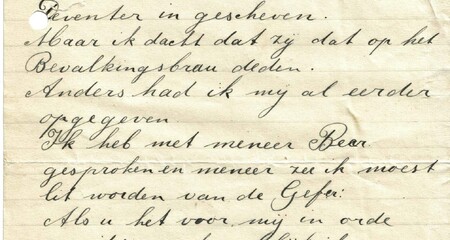 Deventer in gescheven.
Maar ik dacht dat zij dat op het
Bevalkingsbrau deden.
Anders had ik mij al eerder
opgegeven
Ik heb met meneer Beer
gesproken en meneer zei ik moest
lit worden van de Gefer:
Als u het voor mij in orde